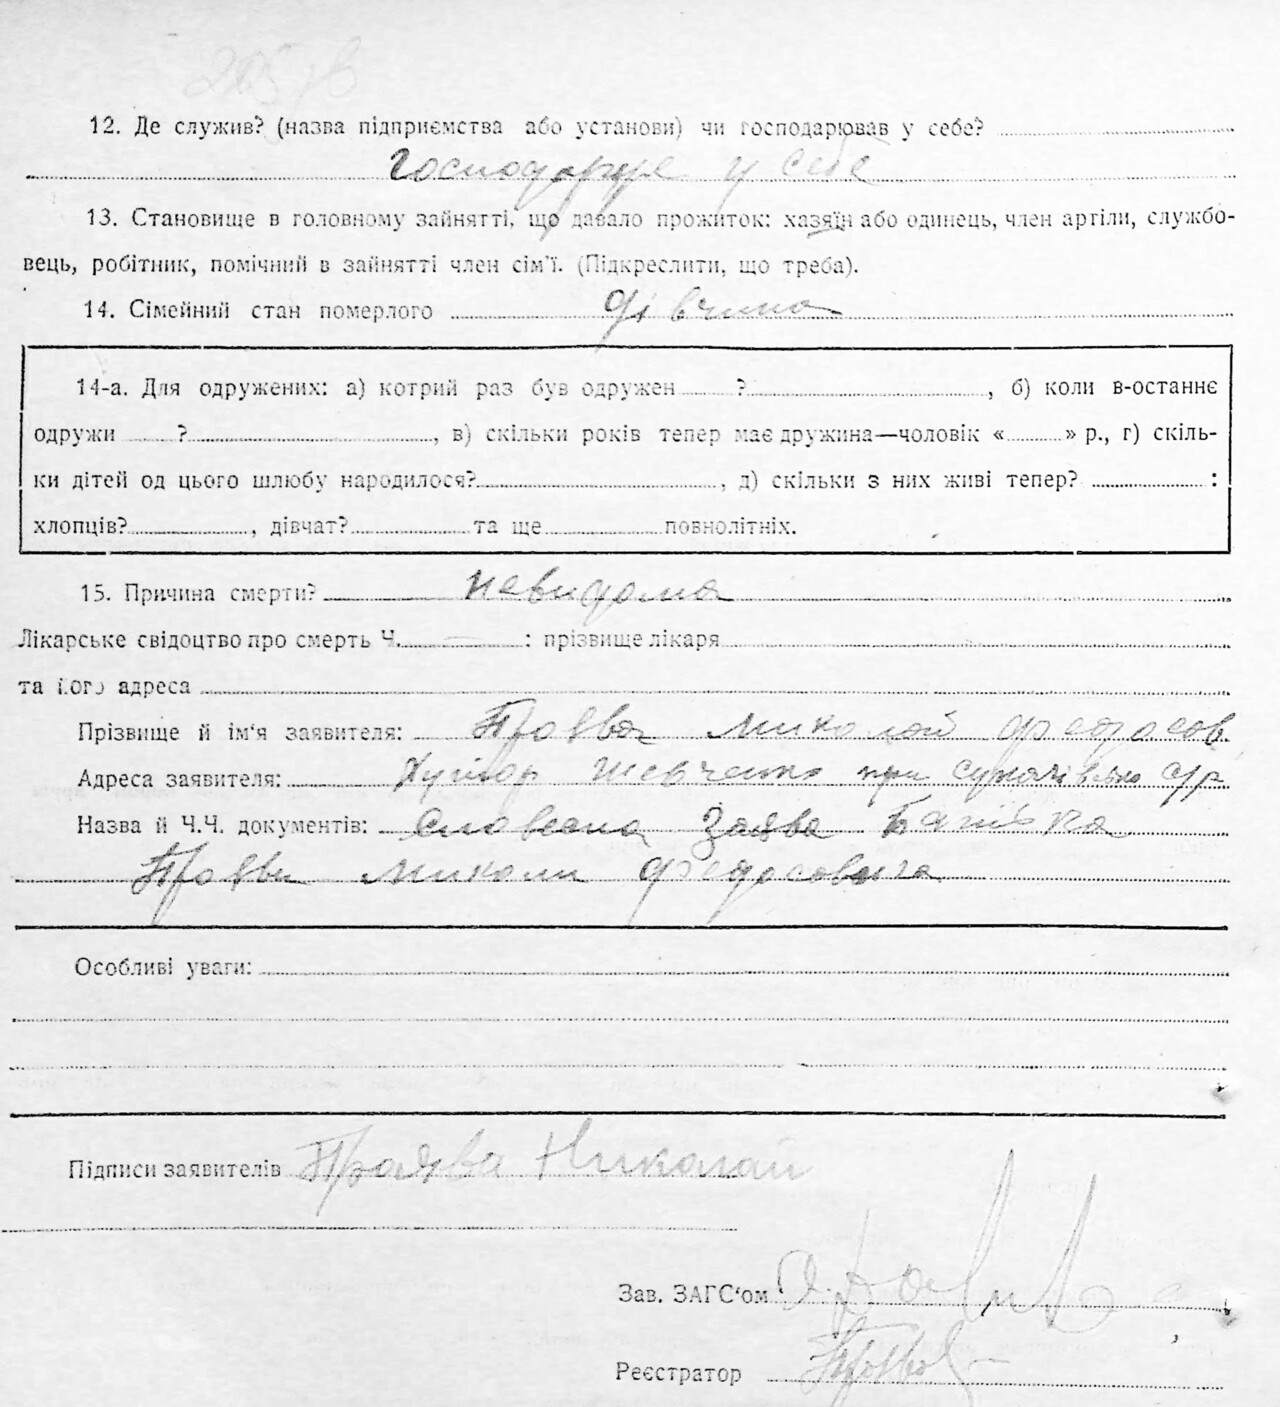 12. Де служив? (назва підприємства або установи) чи господарював у себе?
Господарує у себе
13. Становище в головному зайнятті, що давало прожиток: хазяїн або одинець, член артіли, службо-
вець, робітник, помічний в зайнятті член сім'ї. (Підкреслити, що треба).
14. Сімейний стан померлого дівчина
14-а. Для одружених: а) котрий раз був одружен ? , б) коли в-останнє
одружи ? , в) скільки років тепер має дружина—чоловік « » р., г) скіль-
ки дітей од цього шлюбу народилося? , д) скільки з них живі тепер? :
хлопців? , дівчат? та ще повнолітніх.
15. Причина смерти? невидома
Лікарське свідоцтво про смерть Ч. — : прізвище лікаря
та його адреса
Прізвище й ім'я заявителя: Проява Миколай Федосов.
Адреса заявителя: Хутір Шевченко при с/р
Назва й Ч.Ч. документів: Словесна Заява Батька
Прояви Миколи Федосовича
Особливі уваги:
Підписи заявителів Проява Николай
Зав. ЗАГС'ом
Реєстратор